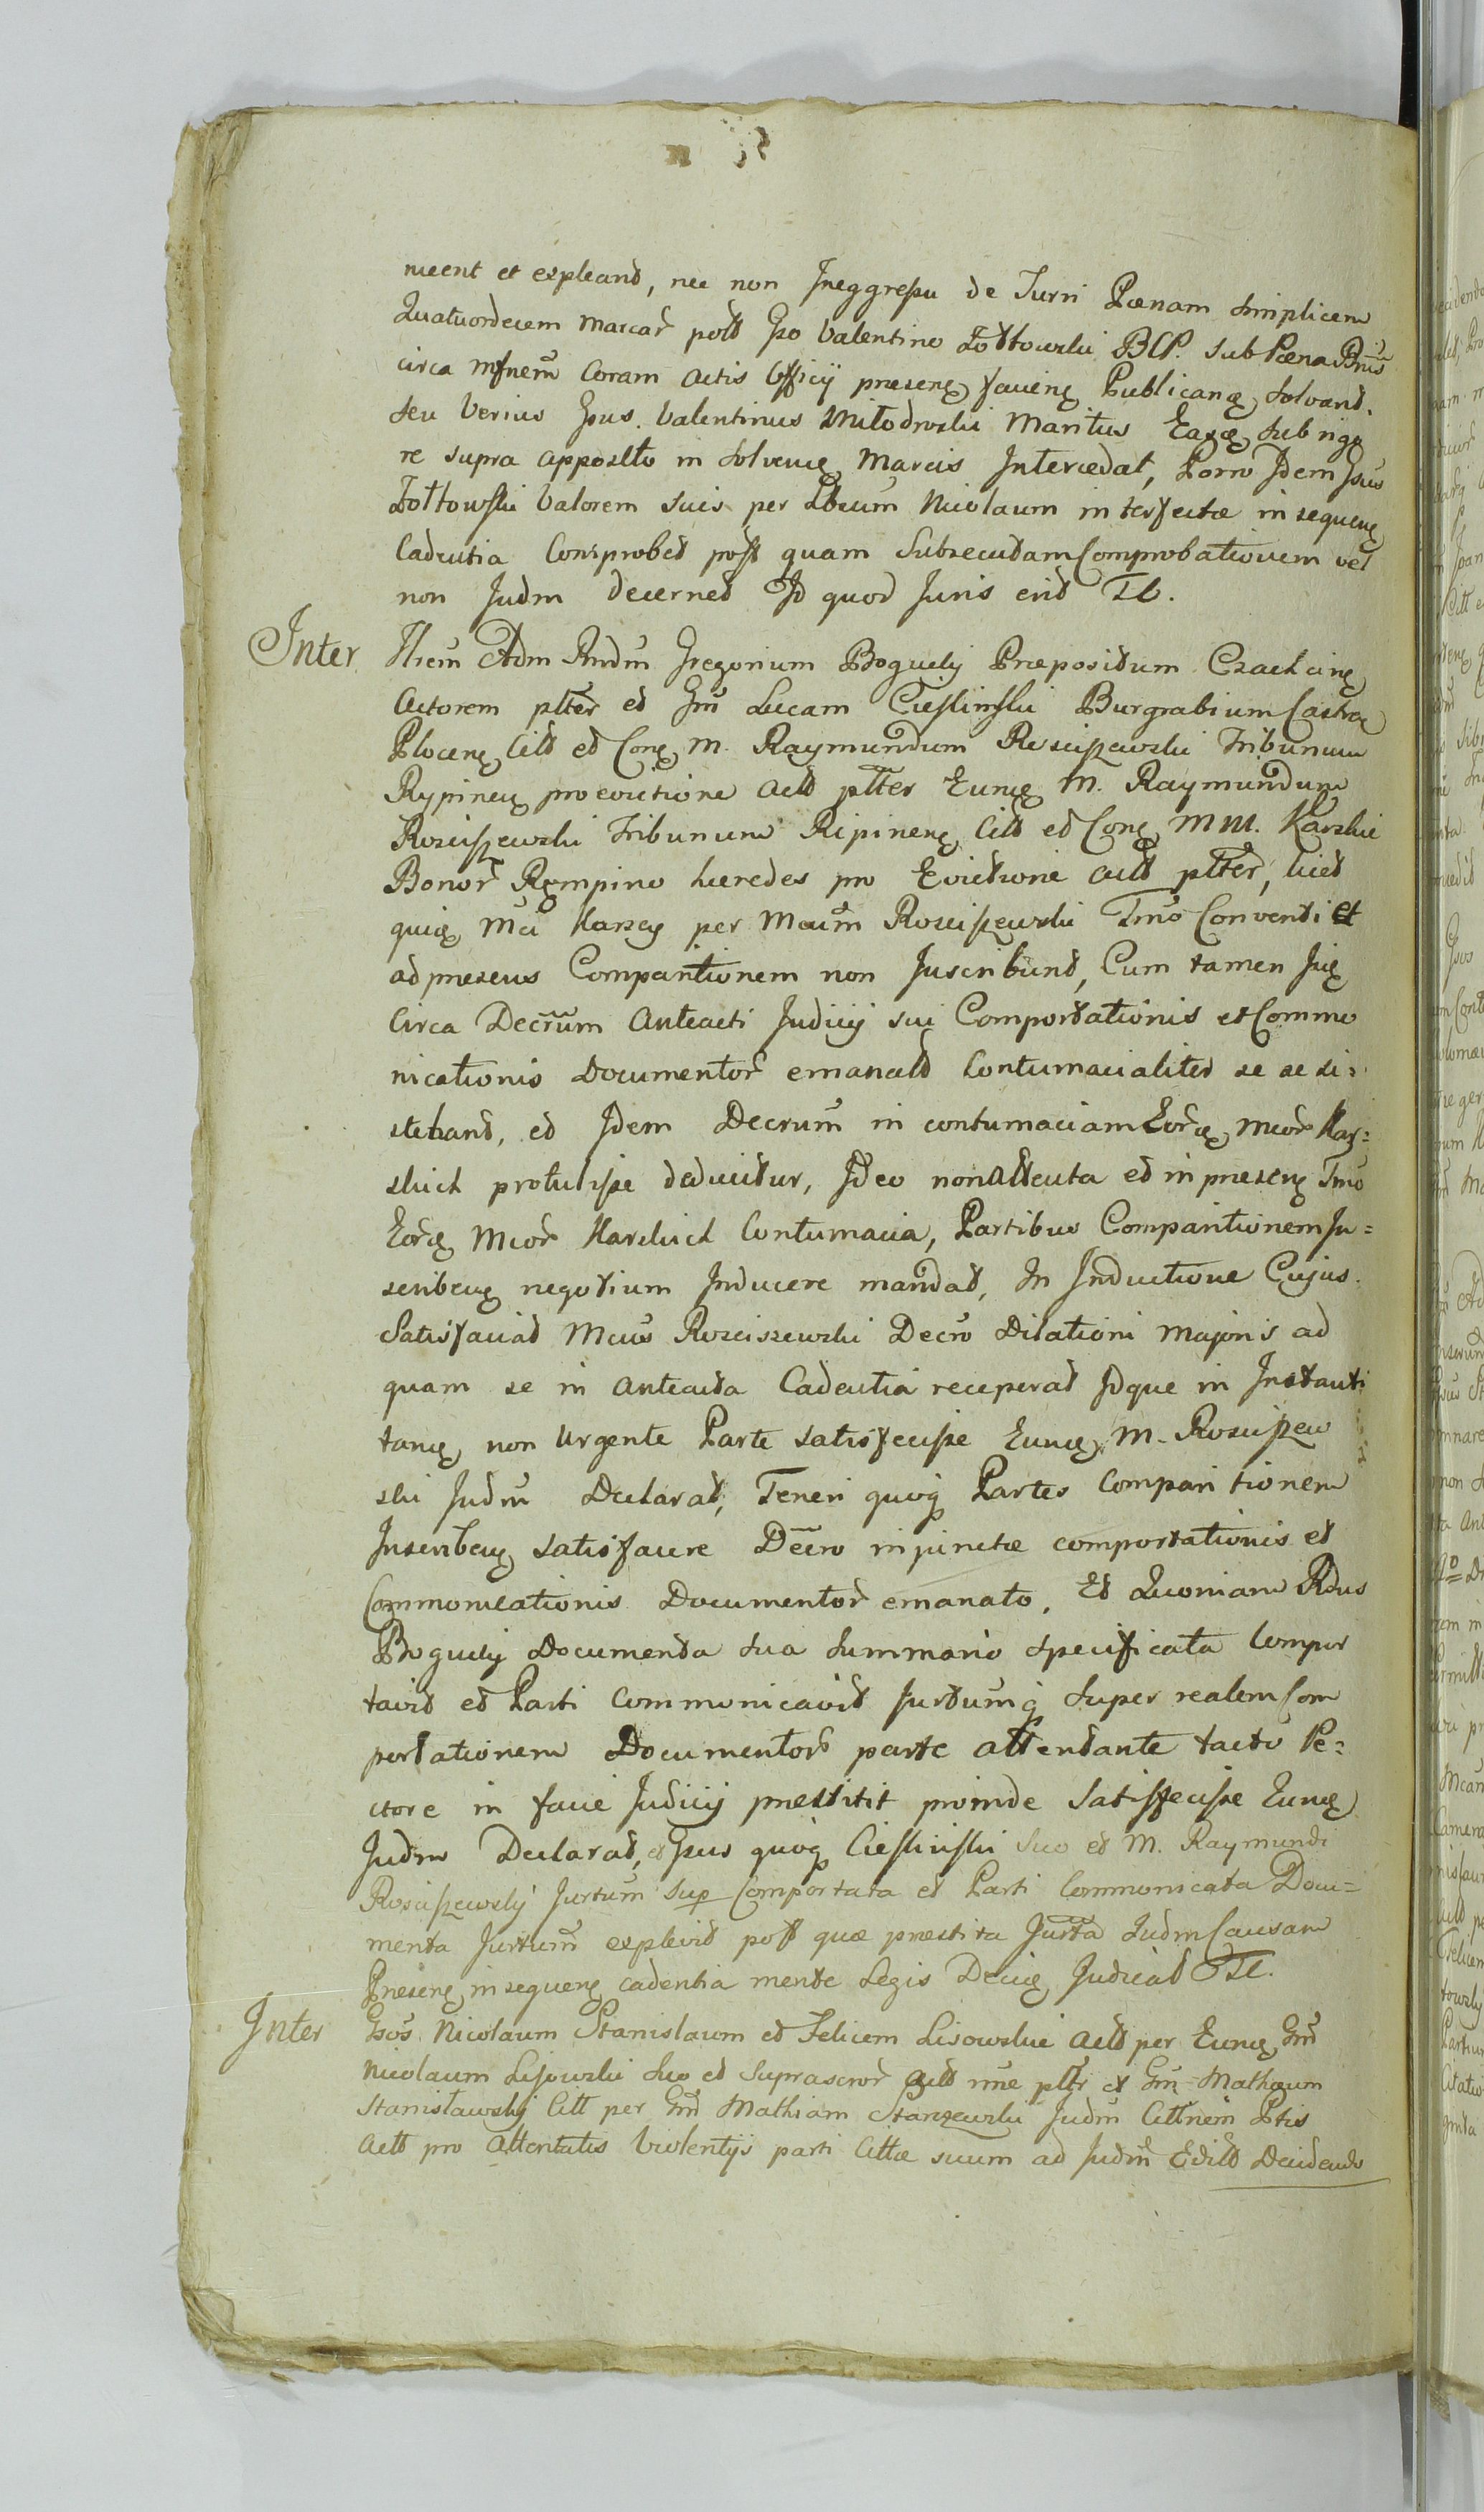 nient et expleand, nec non Ineggressu de Turri Pœnam simplicem
Quatuordecem Marcar post Gso Valentino Zołtowski BCP. sub Pœna Bnis
circa mfnem Coram Actis Officij præsenę facienę Publicanę solvand.
seu Verius Gsus. Valentinus Miłodroski Maritus Eaxę sub rigo
re supra apposito in solvenę Marcis Intercedat, Porro Idem Gsus
Zołtowski Valorem suis per Lbeum Nicolaum interfectæ in sequenę
Cadentia Comprobet post quam Subsecutam Comprobationem vel
non Judm decernet Id quod Juris erit TC.
Inter Illrem Adm Rndm Gregorium Boguely Præpositum Czachcinę
Actorem plter et Gm Lucam Ciesliński Burgrabium Castrę
Plocenę Citt et Conę M. Raymundum Rosciszewski Tribunum
Rypinenę pro evictione Actt plter Eunę M. Raymundum
Rosciszewski Tribunum Ripinenę Citt et Conę MM. Karskie
Bonor Rempino hæredes pro Evictione actt plter, licet
quię Mci Karscy per Mcum Rosciszewski Tmo Conventi et
ad præsens Comparitionem non Inscribunt, Cum tamen Iię
Circa Decrum Anteacti Judicij sui Comportationis et Commu
nicationis Documentor emanatt Contumacialiter se se si=
stebant, et Idem Decrum in contumaciam Eorę Mcor Kar=
skich protulisse deducitur, Ideo non attenta et in præsenę Tmo
Eorę Mcor Karskich Contumacia, Partibus Comparitionem In=
scribenę negotium Inducere mandat, In Inductione Cujus
Satisfaciat Mcus Rosciszewski Decro Dilationi Majoris ad
quam se in Anteacta Cadentia receperat Idque in Instanti
tanę non Urgente Parte satisfecisse Eunę M. Rosciszew
ski Judm Declarat, Teneri quoq Partes Comparitionem
Inscribenę satisfacere Decro injunctæ comportationis et
Communicationis Documentor emanato, Et Quoniam Rdus
Boguely Documenta sua summario specificata Compor
tavit et Parti Communicavit Jurtumq super realem Com
portationem Documentor parte attentante tacto Pe=
ctore in facie Judicij præstitit proinde Satisfecisse Eunę
Judm Declarat, et Gsus quoq Ciesliński suo et M. Raymundi
Rosciszewskj Jurtum sup Comportata et Parti Communicata Docu=
menta Jurtum explevit post quæ præstita Jurta Judm Causam
Præsenę in sequenę cadentia mente Legis Decię Judicat TC.
Inter Gsos Nicolaum Stanislaum et Felicem Lisowskie Actt per Eunę Gm
Nicolaum Lisowski suo et Suprascror Actt nne pltr et Gm Mathæum
Stanisławskj Citt per Gm Mathiam Staniszewski Judm Cittnem Ptis
Actt pro Attentatis Violentijs parti Cittæ suum ad Judm Editt Decidendo